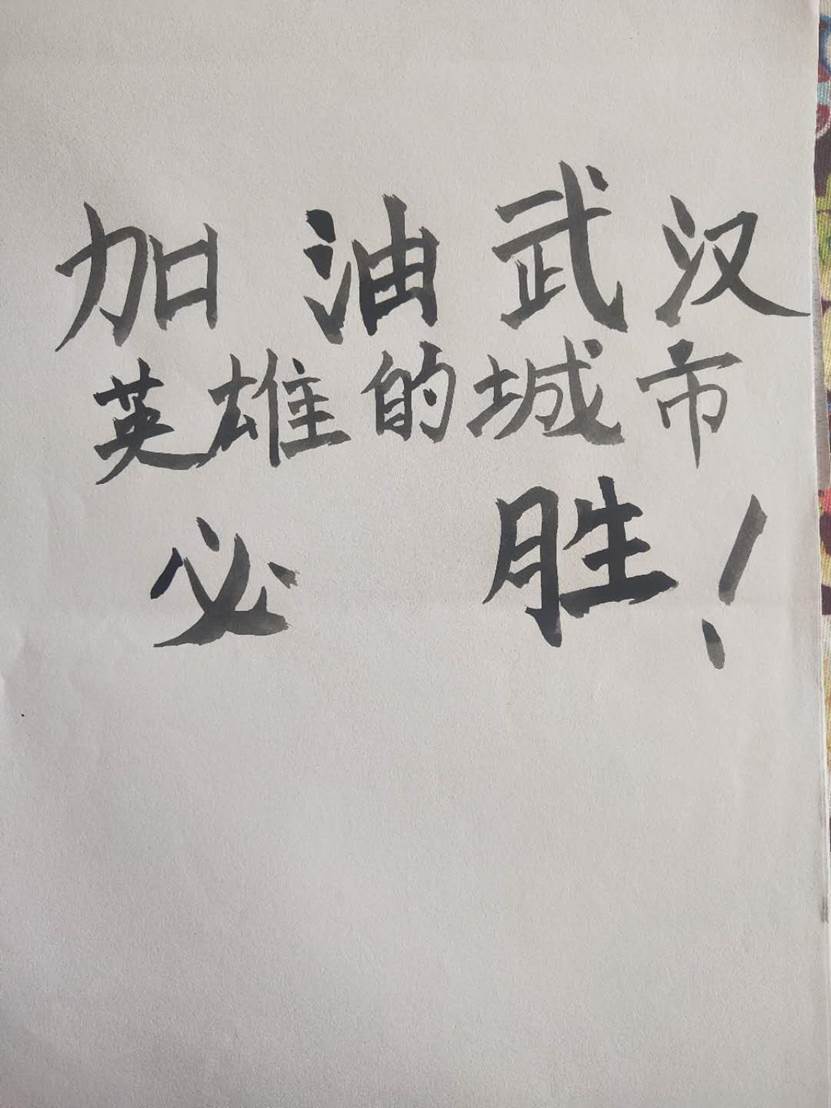 加油武汉
英雄的城市
必胜！